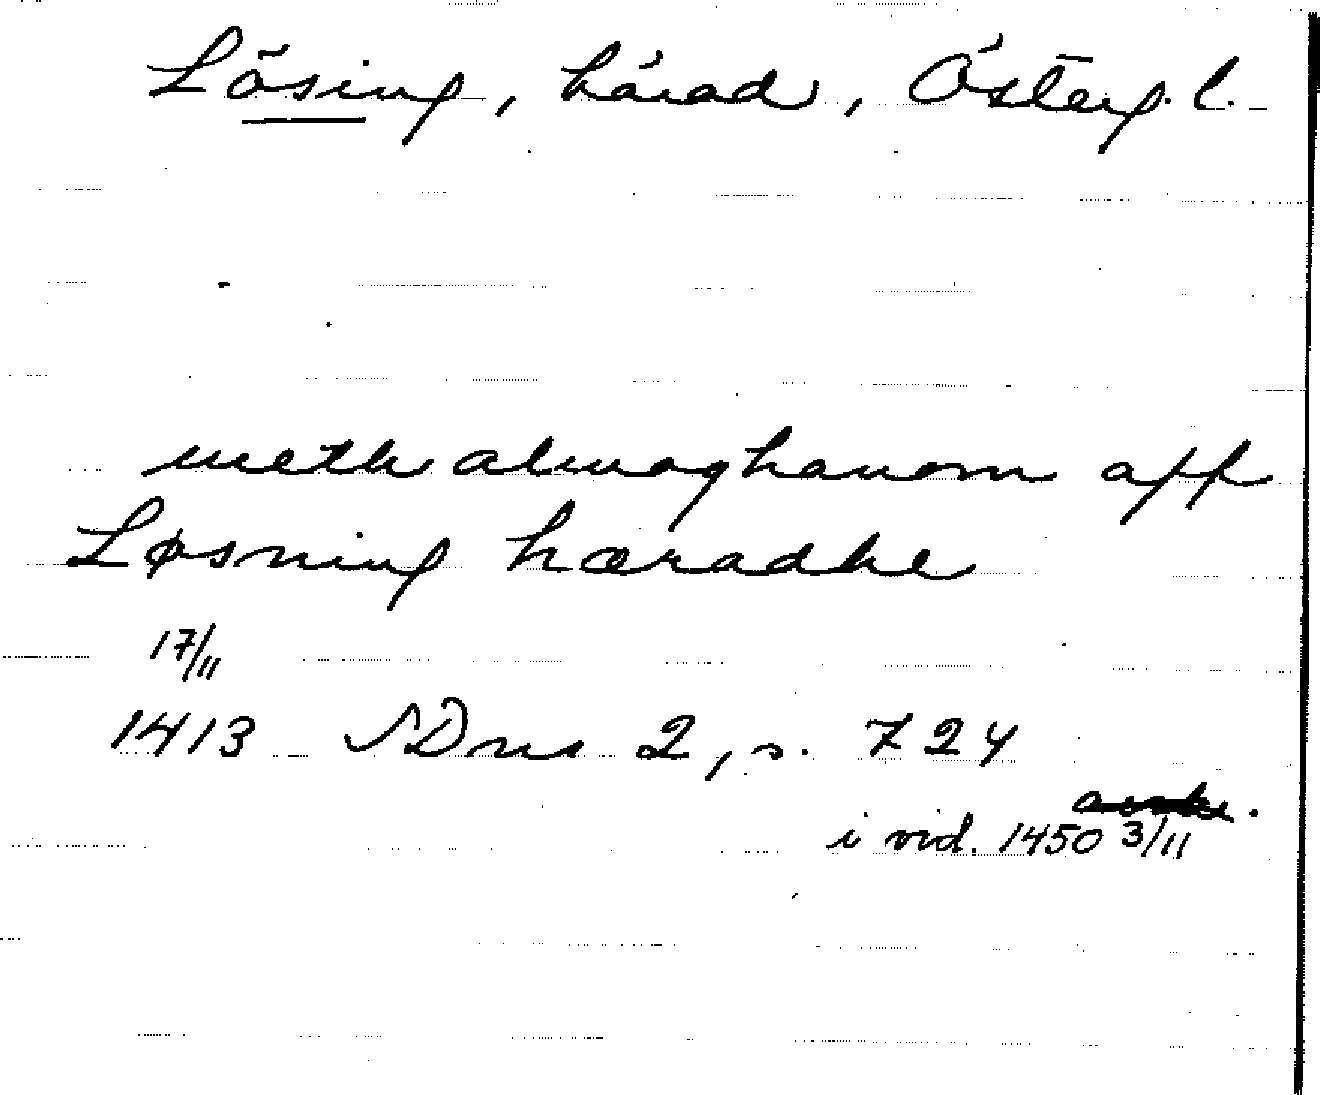 Lösing, härad, Österg.l.
meth almoghanom aff
Løsning hæradhe
17/11
1413 SDns 2, s. 724
i vid. 1450 3/11